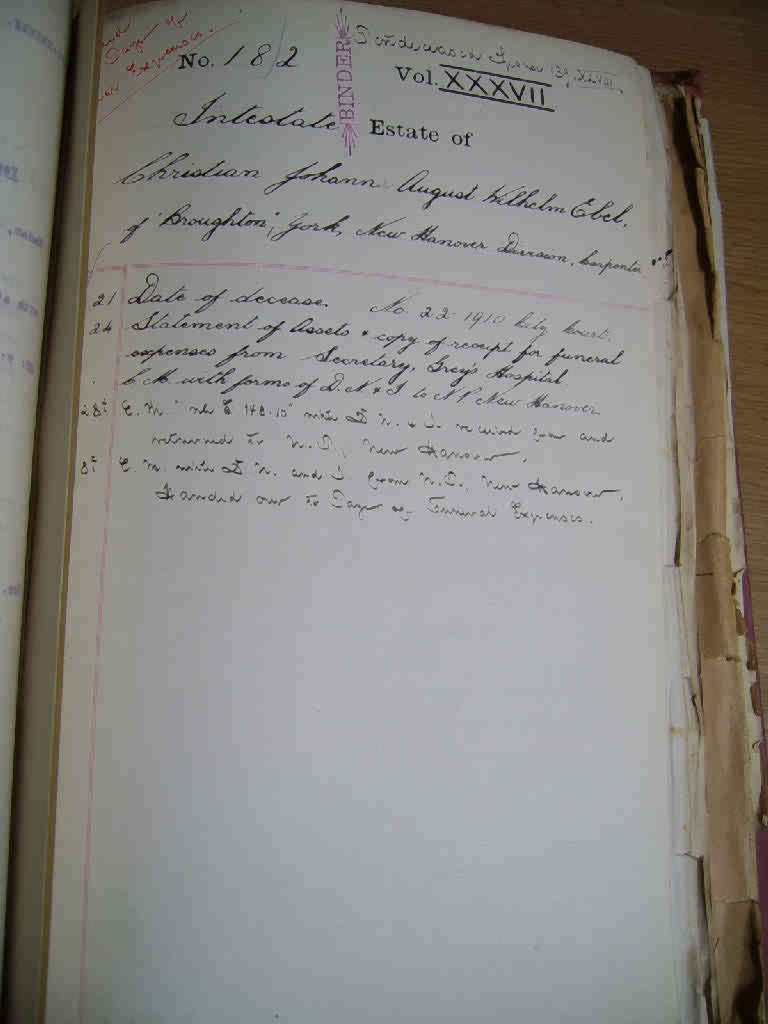 Page of
Expenses.
No. 182
BINDER
Vol. XXXVII
XLVIII
Intestate Estate of
Christian Johann August Wilhelm Ebel,
of "Broughton", York, New Hanover Division, Carpenter
21 Date of decease. No. 22 1910 City Court.
24 Statement of Assets & copy of receipt for funeral
expenses from Secretary, Grey's Hospital
C.M. with forms of D.N & I to N.P. New Hanover
28t C. M. D. N. & I. and
returned to New Hanover.
8t C. M. D. N. and I. from New Hanover.
Handed over to Page of Funeral Expenses.